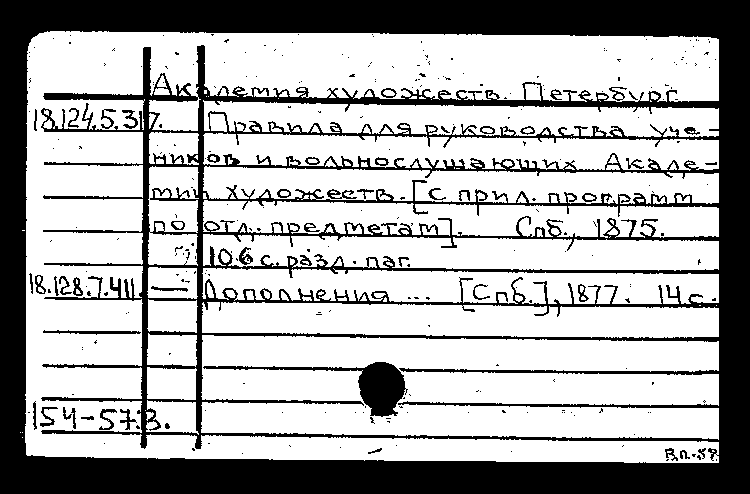 Академия художеств. Петербург
18.124.5.317. Правила для руководства уче-
ников и вольнослушающих Акаде-
мии художеств. [С прил. программ
по отд. предметам]. Спб., 1875.
106 с. разд. паг.
18.128.7.411. — Дополнения ... [Спб.], 1877. 14 с.
154-57.В.
В.п.-58